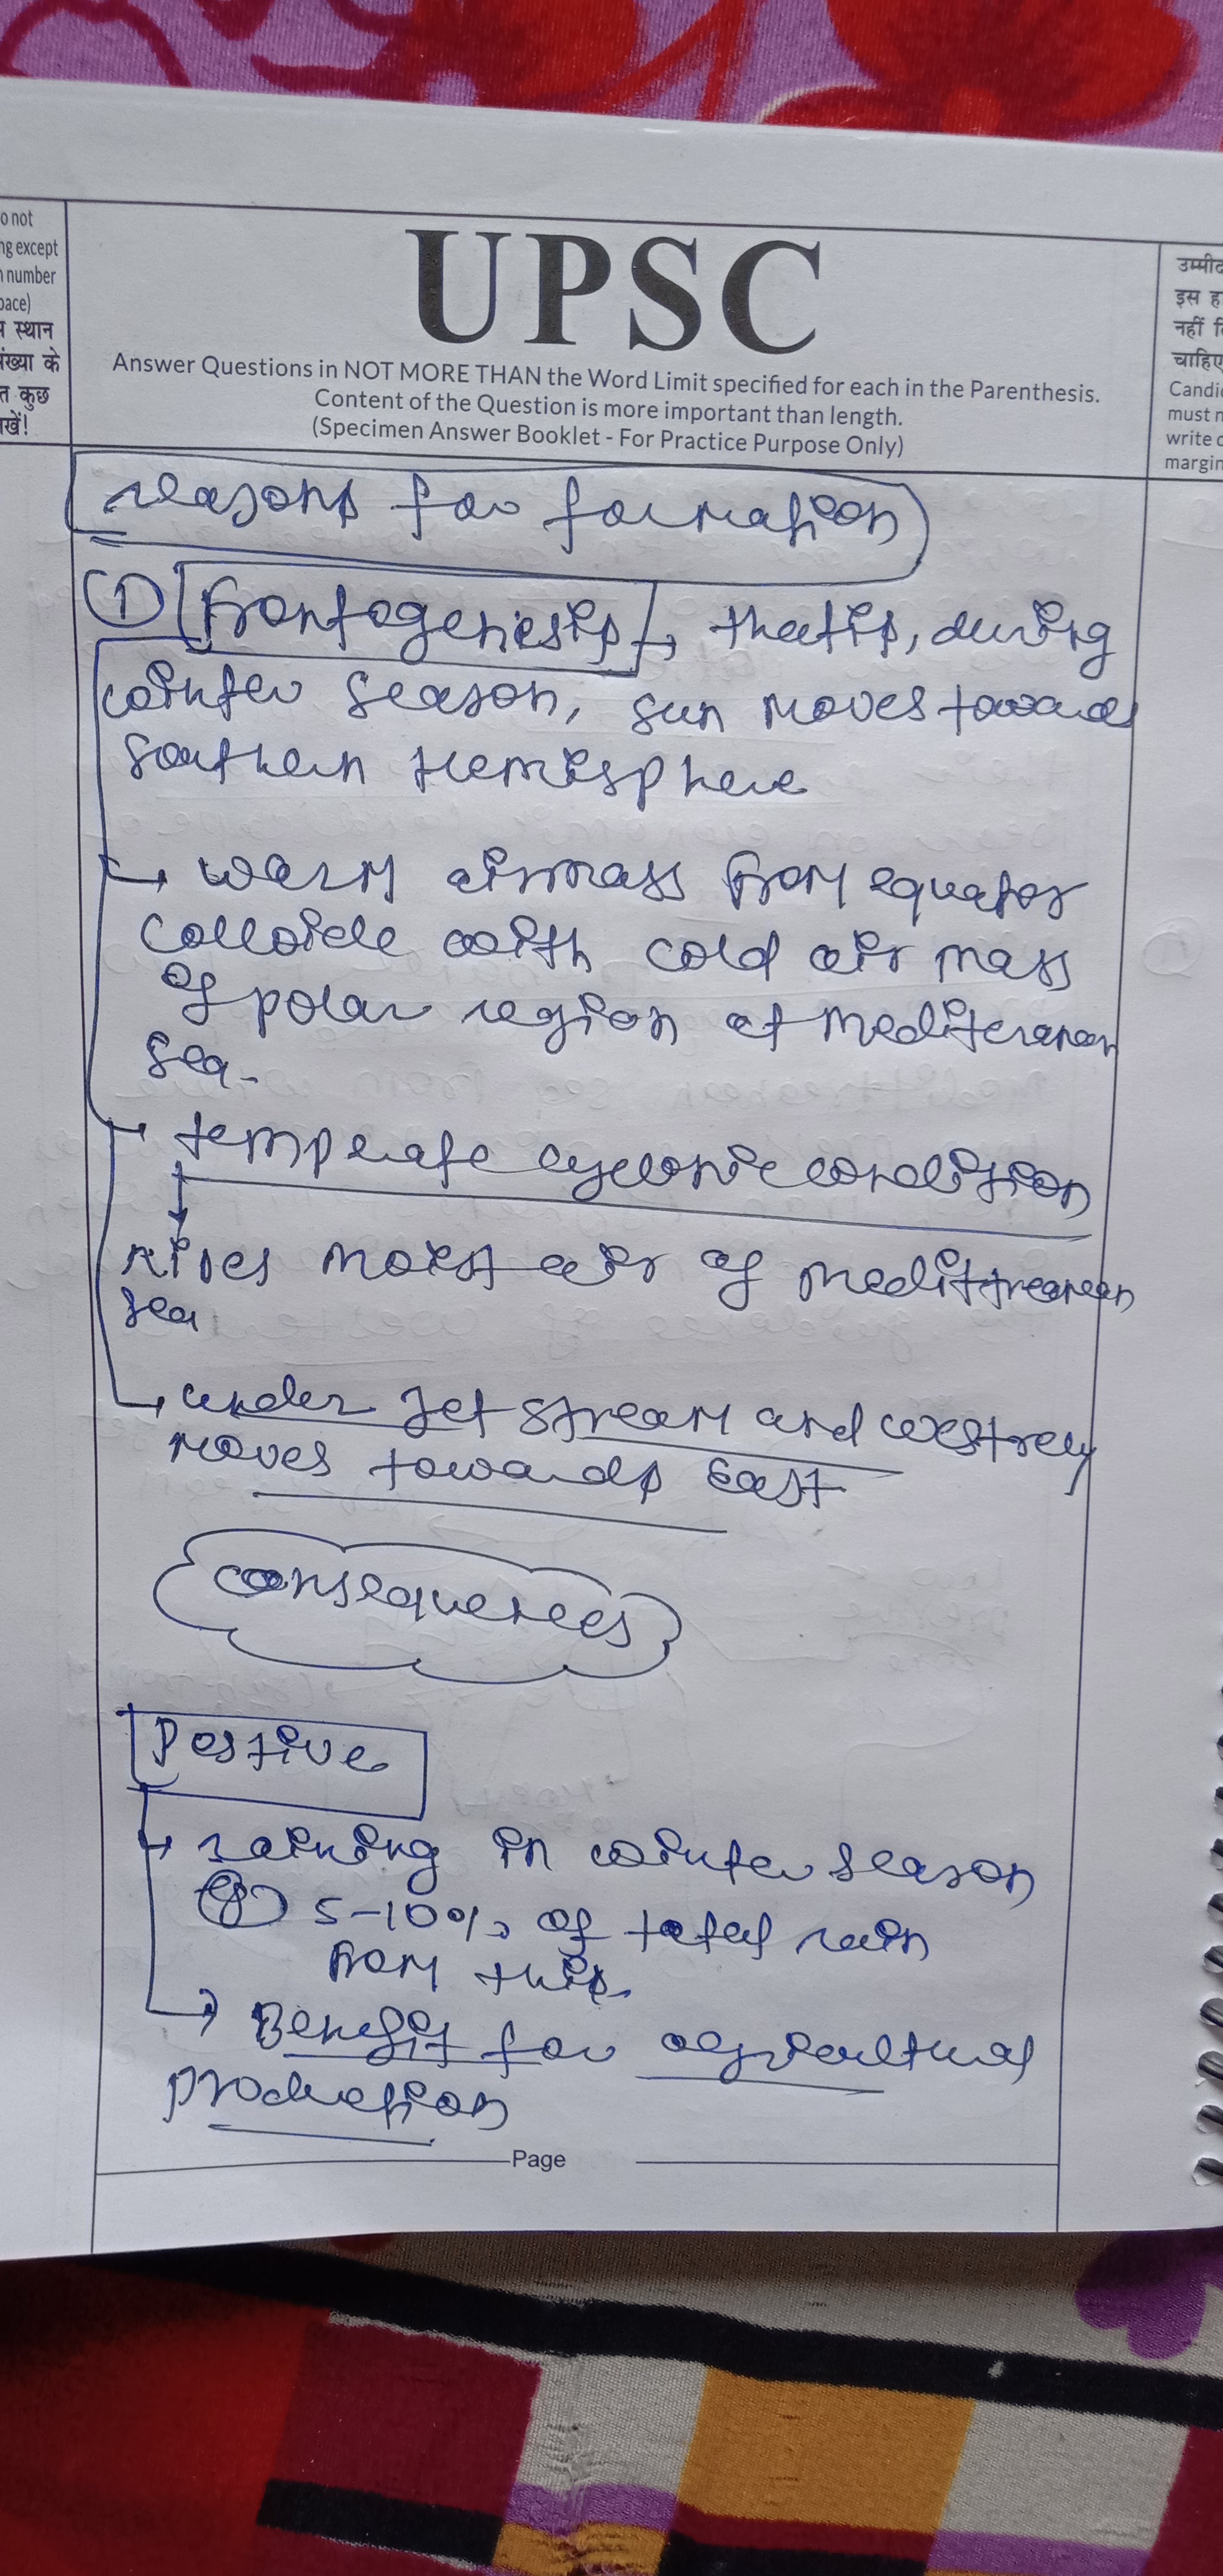 o not
ng except
n number
pace)
स्थान
संख्या के
त कुछ
खें!
UPSC
Answer Questions in NOT MORE THAN the Word Limit specified for each in the Parenthesis.
Content of the Question is more important than length.
(Specimen Answer Booklet - For Practice Purpose Only)
उम्मीद
इस ह
नहीं f
चाहिए
Candi
must n
write o
margin
reasons for formation
① frontogenesis → that is, during
winter season, sun moves towards
southern Hemisphere
→ warm airmass from equator
colloide with cold air mass
of polar region at Mediteranean
sea.
→ temperate cyclonic condition
rises moist air of Medittreanean
sea
→ under Jet stream and westrely
moves towards East
consequences
Postive
→ raining in winter season
eg 5-10% of total rain
from this.
→ Benefit for agricultural
production
Page